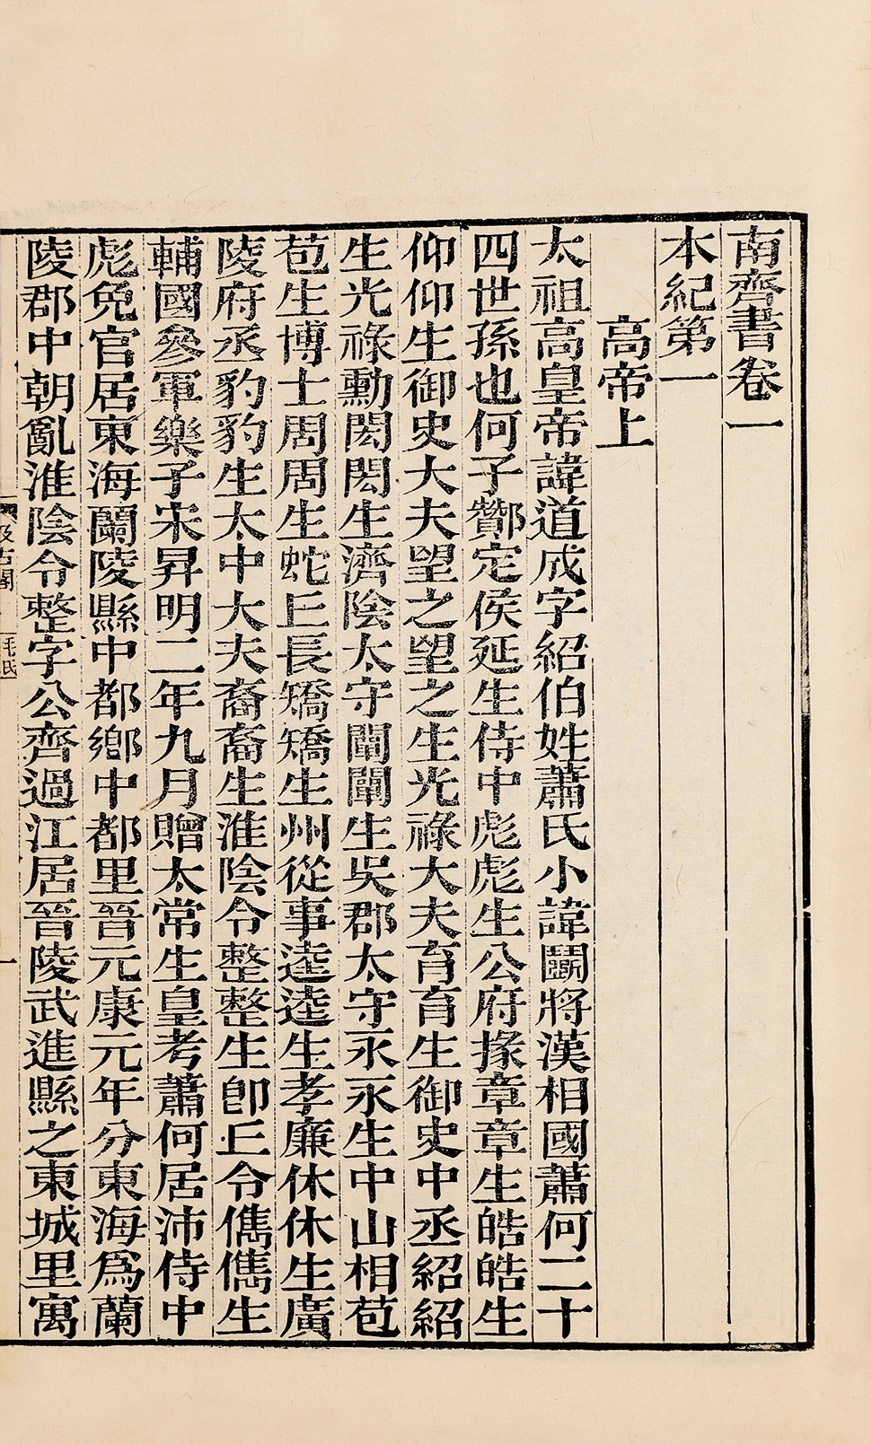 南齊書卷一
本紀第一
高帝上
太祖高皇帝諱道成字紹伯姓蕭氏小諱鬭將漢相國蕭何二十
四世孫也何子酇定侯延生侍中彪彪生公府掾章章生皓皓生
仰仰生御史大夫望之望之生光祿大夫育育生御史中丞紹紹
生光祿勳閎閎生濟陰太守闡闡生吳郡太守永永生中山相苞
苞生博士周周生蛇丘長矯矯生州從事逵逵生孝廉休休生廣
陵府丞豹豹生太中大夫裔裔生淮陰令整整生卽丘令儁儁生
輔國參軍樂子宋昇明二年九月贈太常生皇考蕭何居沛侍中
彪免官居東海蘭陵縣中都鄉中都里晉元康元年分東海爲蘭
陵郡中朝亂淮陰令整字公齊過江居晉陵武進縣之東城里寓
汲古閣
毛氏